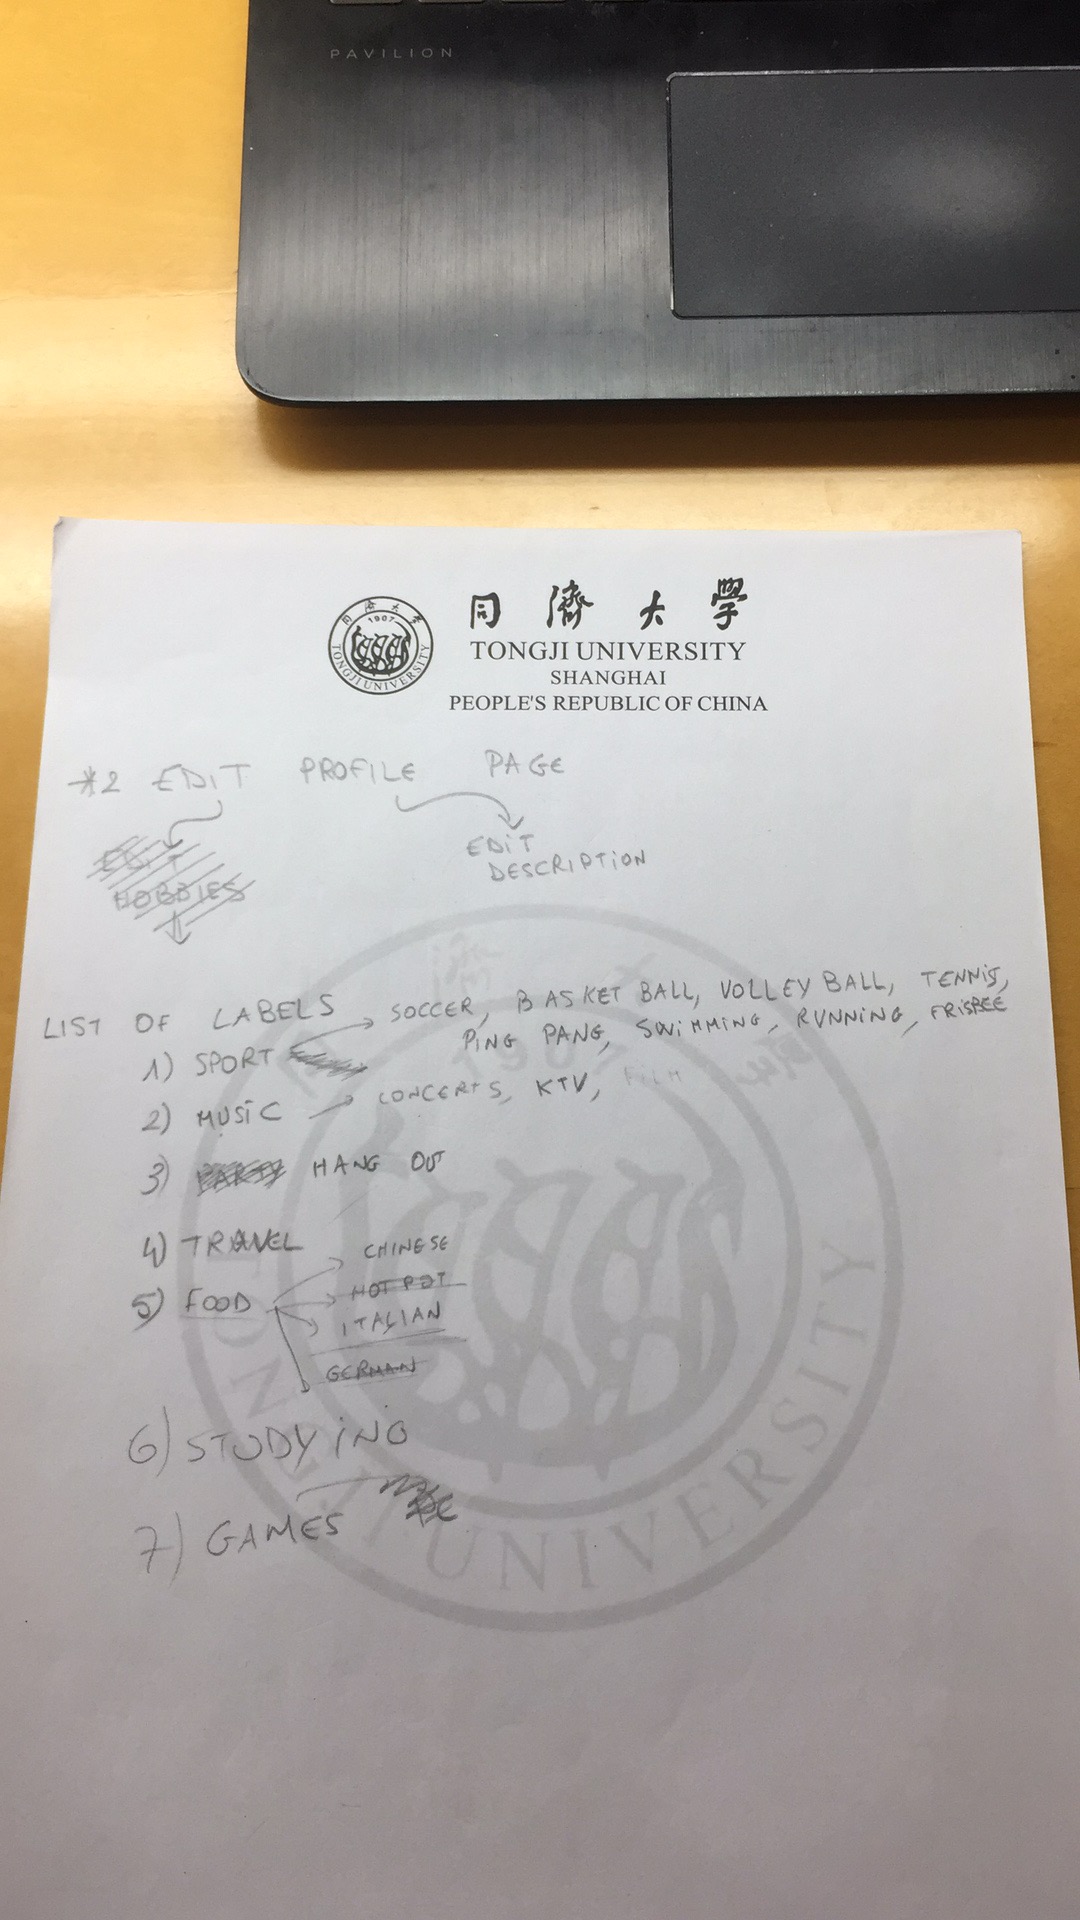 PAVILION
同濟大學
1907
TONGJI UNIVERSITY
同濟大學
TONGJI UNIVERSITY
SHANGHAI
PEOPLE'S REPUBLIC OF CHINA
*2 EDIT PROFILE PAGE
EDIT
HOBBIES
EDIT
DESCRIPTION
LIST OF LABELS
1) SPORT
SOCCER, BASKET BALL, VOLLEY BALL, TENNIS,
PING PANG, SWIMMING, RUNNING, FRISBEE
2) MUSIC
CONCERTS, KTV, FILM
3) PARTY HANG OUT
4) TRAVEL
5) FOOD
CHINESE
HOT POT
ITALIAN
GERMAN
6) STUDYING
7) GAMES
1907
UNIVERSITY